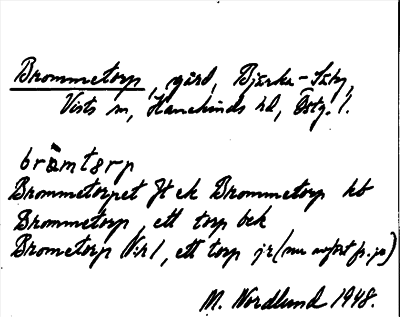 Brommetorp, gård, Bjärka-Säby,
Vists sn, Hanekinds hd, Östg. l.
bròmtɵrp
Brommetorpet Jt ek Brommetorp hb
Brommetorp, ett torp bek
Brometorp Vir 1, ett torp jr (nu avfört fr. jr)
M. Nordlund 1948.